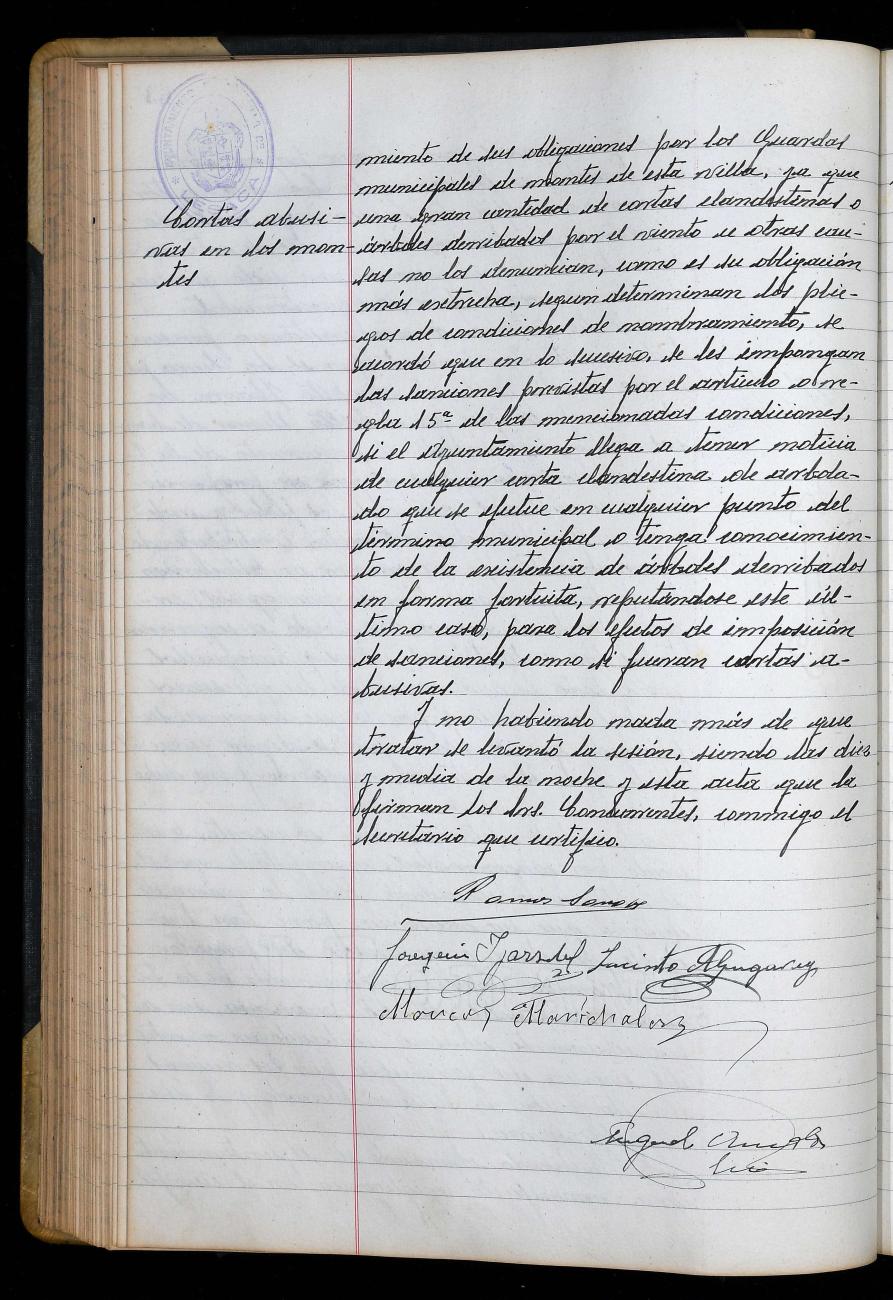 Cortas abusi-
vas en los mon-
tes
miento de sus obligaciones por los Guardas
municipales de montes de esta villa, ya que
una gran cantidad de cortas clandestinas o
árboles derribados por el viento u otras cau-
sas no los denuncian, como es su obligación
más extrecha, segun determinan los plie-
gos de condiciones de nombramiento, se
acordó que en lo sucesivo, se les impongan
las sanciones previstas por el artículo o re-
gla 15ª de las mencionadas condiciones,
si el Ayuntamiento llega a tener noticia
de cualquier corta clandestina de arbola-
do que se efectue en cualquier punto del
término municipal o tenga conocimien-
to de la existencia de árboles derribados
en forma fortuita, reputándose este úl-
timo caso, para los efectos de imposición
de sanciones, como si fueran cortas a-
busivas.
Y no habiendo nada más de que
tratar se levantó la sesión, siendo las diez
y media de la noche y esta acta que la
firman los Srs. Concurrentes, conmigo el
Secretario que certifico.
Joaquin
Jacinto
Marcos Marichalar
Miguel